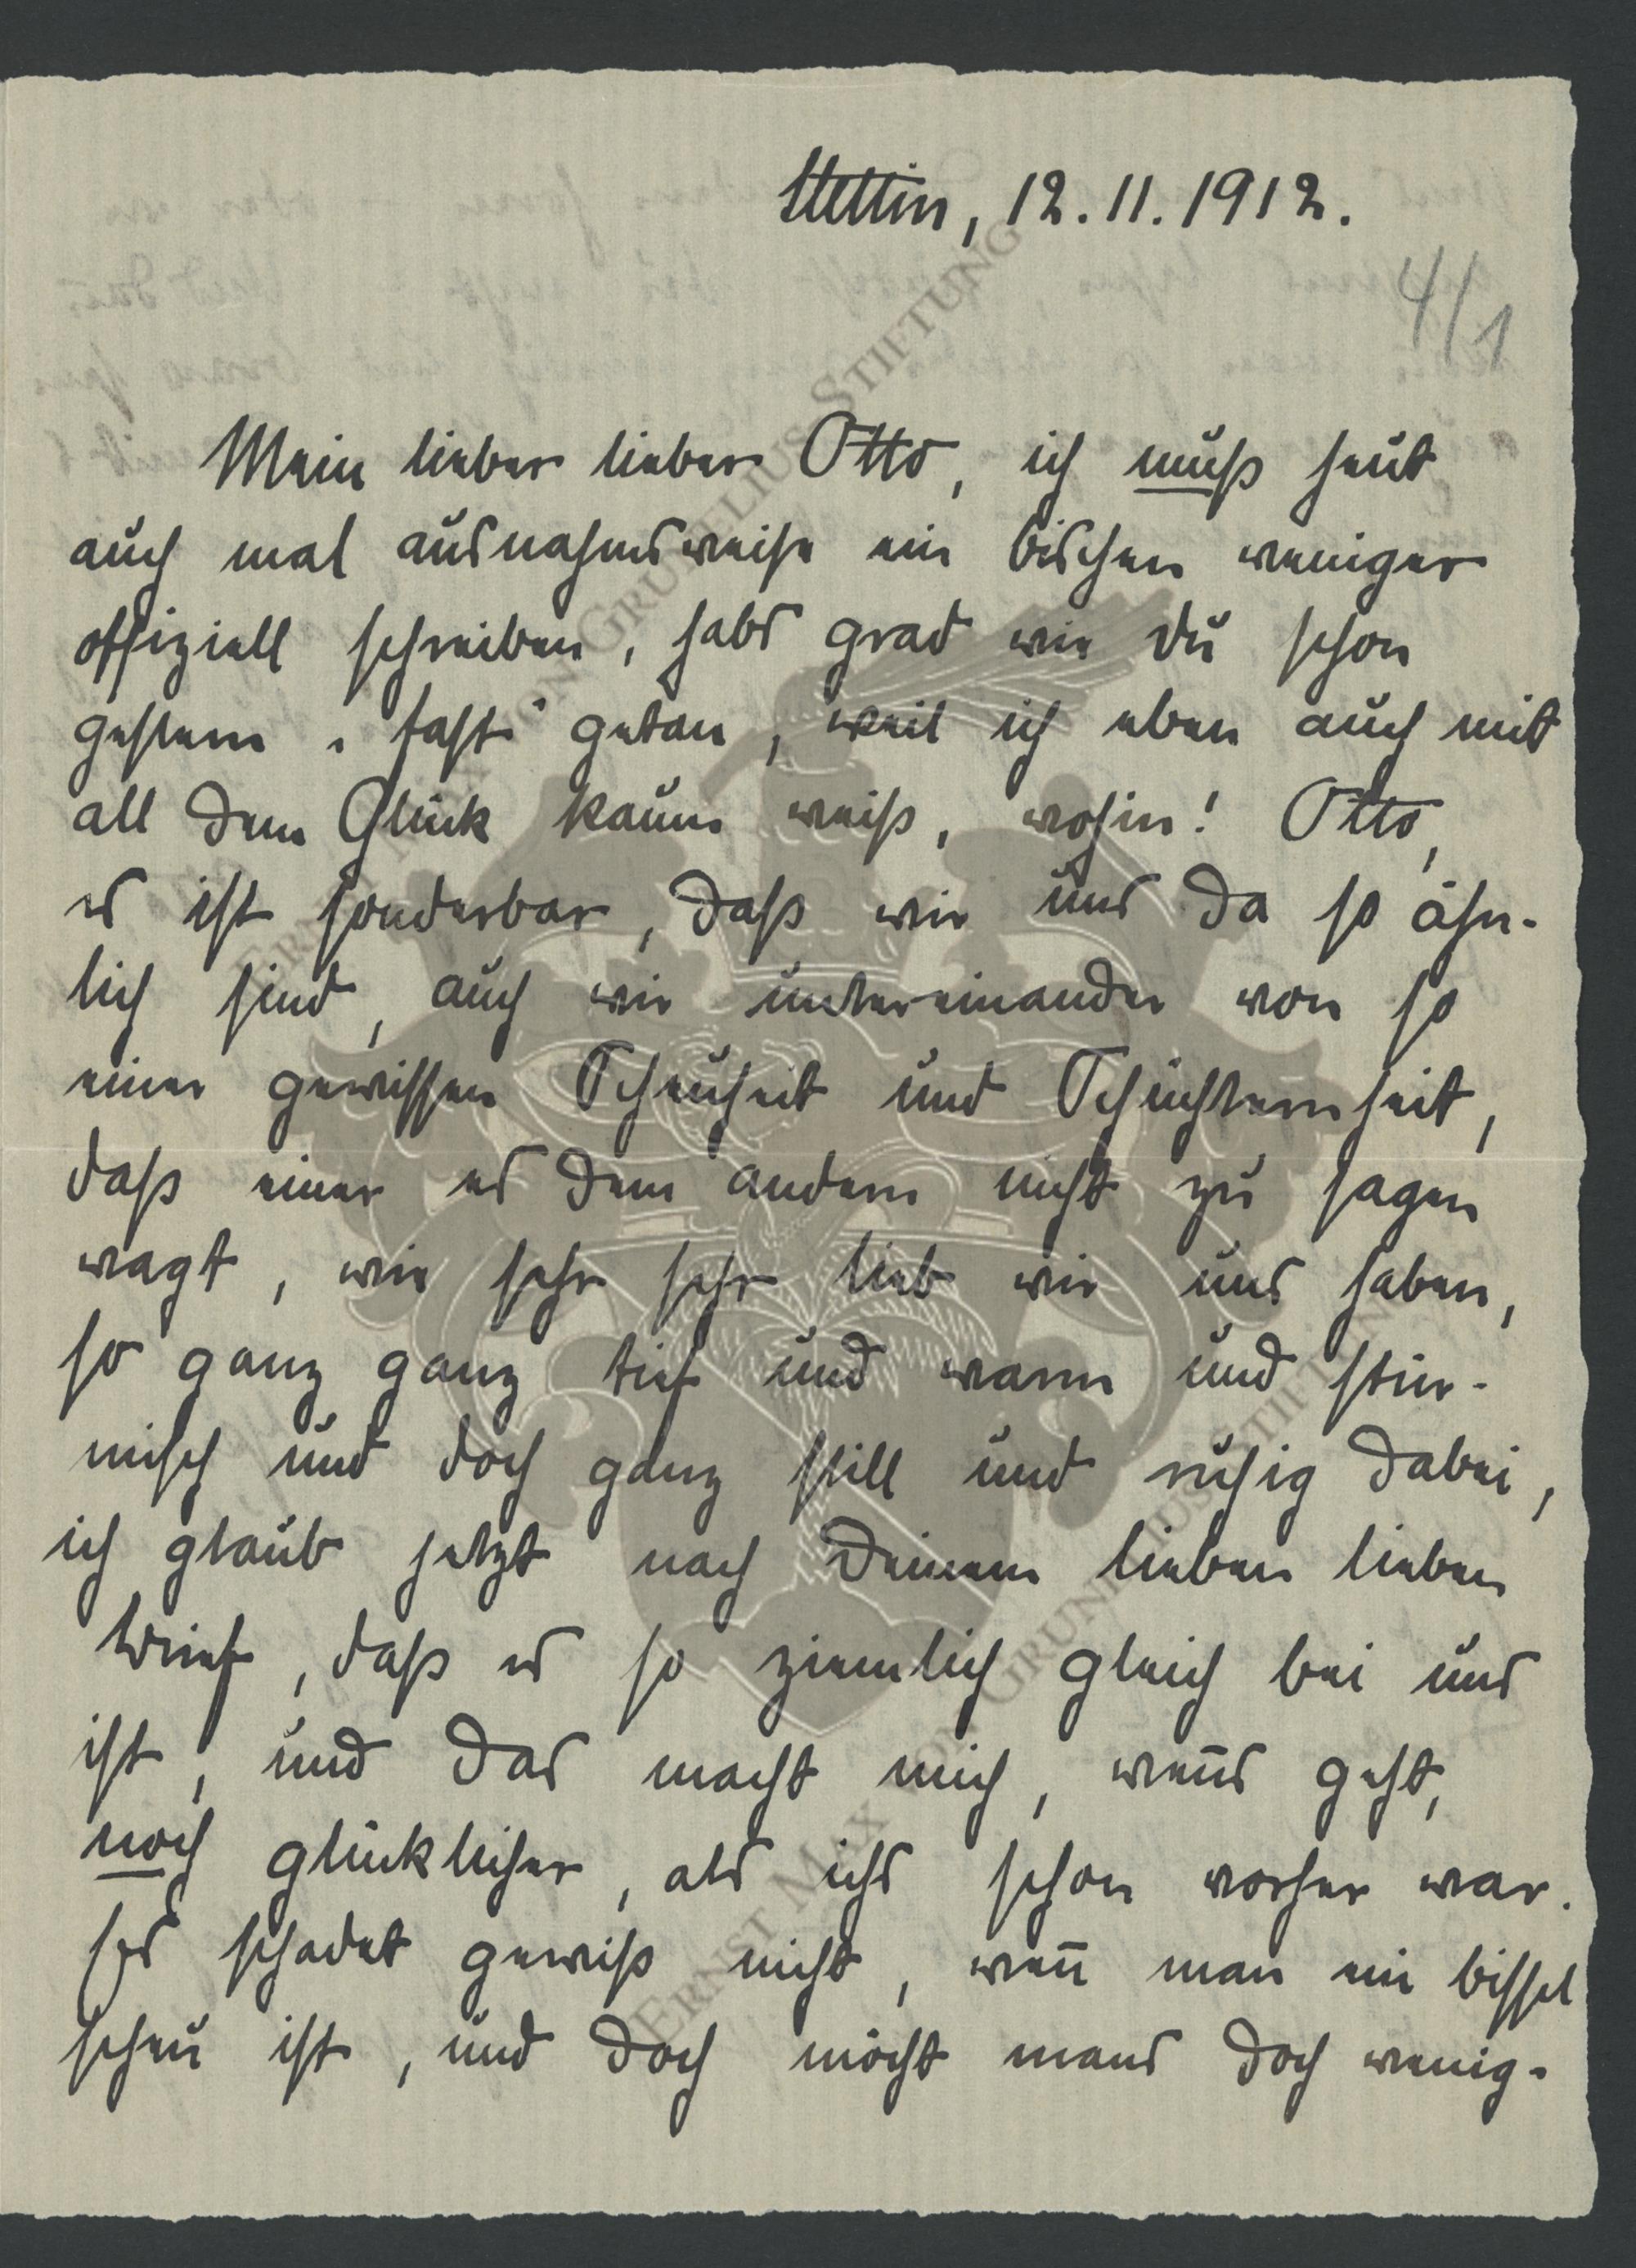 Stettin, 12.11.1912.
4/1
Mein lieber lieber Otto, ich muß heut
auch mal ausnahmsweise ein bischen weniger
offiziell schreiben, habs grad wie Du schon
gestern „fast“ getan, weil ich eben auch mit
all dem Glück kaum weiß, wohin! Otto,
es ist sonderbar, daß wir uns da so ähn-
lich sind, auch wir untereinander von so
einer gewissen Scheuheit und Schüchternheit,
daß einer es dem andern nicht zu sagen
wagt, wie sehr sehr lieb wir uns haben,
so ganz ganz tief und warm und stür-
misch und doch ganz still und ruhig dabei,
ich glaub jetzt nach Deinem lieben lieben
Brief, daß es so ziemlich gleich bei uns
ist, und das macht mich, wen̄s geht,
noch glücklicher, als ichs schon vorher war.
Es schadet gewiß nicht, wen̄ man ein bissel
scheu ist, und doch möcht mans doch wenig-
ERNST MAX VON GRUNELIUS STIFTUNG
ERNST MAX VON GRUNELIUS STIFTUNG